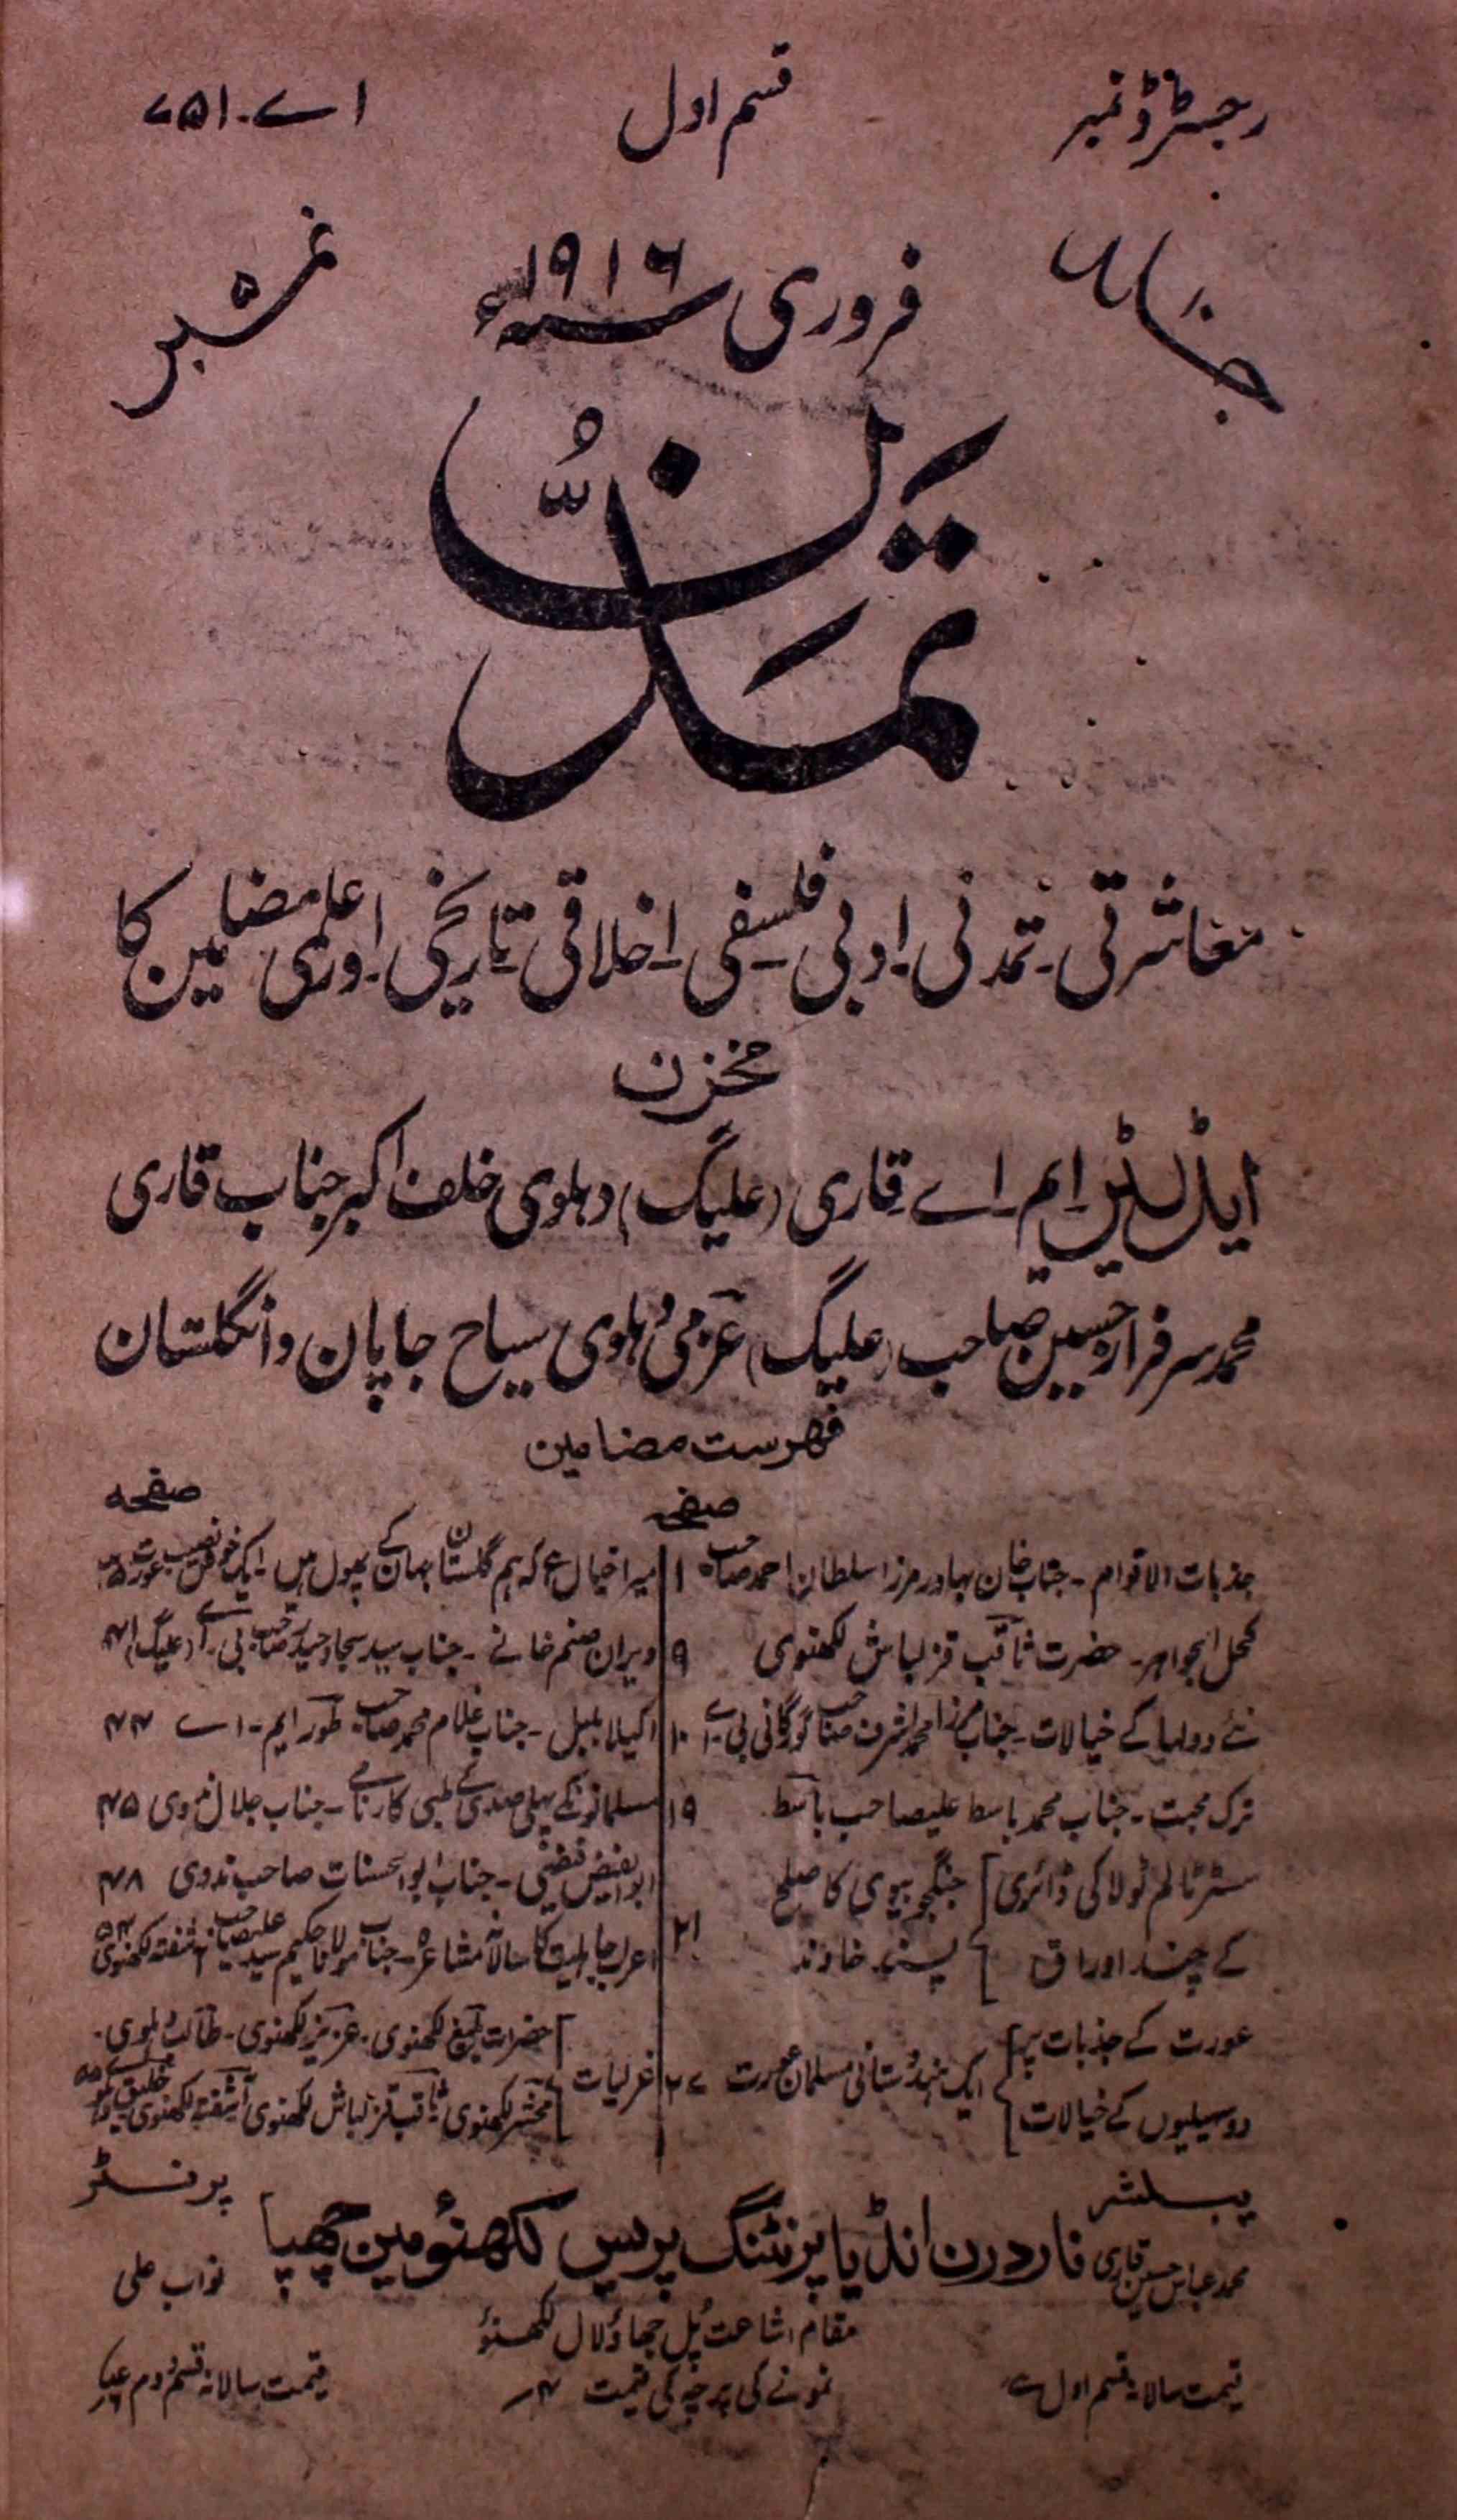 رجسٹرڈ نمبر
قسم اول
اے۔ ۷۵۱
نمبر ۵
فروری ۱۹۱۶ء
تمدّن
معاشرتی۔ تمدنی۔ ادبی۔ فلسفی۔ اخلاقی۔ تاریخی۔ اور علمی مضامین کا
مخزن
ایڈیٹر ایم۔ اے۔ قاری (علیگ) دہلوی خلف اکبر جناب قاری
محمد سرفراز حسین صاحب (علیگ) عزمی دہلوی سیاح جاپان و انگلستان
فہرست مضامین
صفحہ
جذبات الاقوام۔ جناب خان بہادر مرزا سلطان احمد صاحب ۱
کحل الجواہر۔ حضرت ثاقب قزلباش لکھنوی ۹
نئے دولہا کے خیالات۔ جناب مرزا محمد اشرف صاحب گورگانی بی۔ اے ۱۰
ترک محبت۔ جناب محمد باسط علیصاحب باسط ۱۹
مسٹر ٹالم ٹولا کی ڈائری جنگجو بیوی کا صلح
کے چند اوراق پسند خاوند ۲۱
عورت کے جذبات پر
ایک ہندوستانی مسلمان عورت ۲۷
دو سہیلیوں کے خیالات
صفحہ
میرا خیال ہے کہ ہم گلستان جہان کے پھول ہیں۔ ایک خوش نصیب عورت
ویران صنم خانے۔ جناب سید سجاد حیدر صاحب بی۔ اے (علیگ) ۴۱
اکیلا بلبل۔ جناب غلام محمد صاحب طور ایم۔ اے ۴۴
مسلمانونکے پہلی صدی کے طبی کارنامے۔ جناب جلال مروی ۴۵
ابوالفیض فیضی۔ جناب ابوالحسنات صاحب ندوی ۴۸
اعراب جاہلیت کا سالانہ مشاعرہ۔ جناب مولانا حکیم سید علیصاحب آشفتہ لکھنوی ۵۴
حضرات بلیغ لکھنوی۔ عزیز لکھنوی۔ طالب دہلوی۔
غزلیات
محشر لکھنوی ثاقب قزلباش لکھنوی آشفتہ لکھنوی خلیق
پبلشر
پرنٹر
محمد عباس حسین قاری
فار درن انڈیا پرنٹنگ پریس لکھنؤ مین چھپا
نواب علی
مقام اشاعت پل جھاؤ لال لکھنؤ
قیمت سالانہ قسم اول
نمونے کی پرچہ کی قیمت ۴؍
قیمت سالانہ قسم دوم